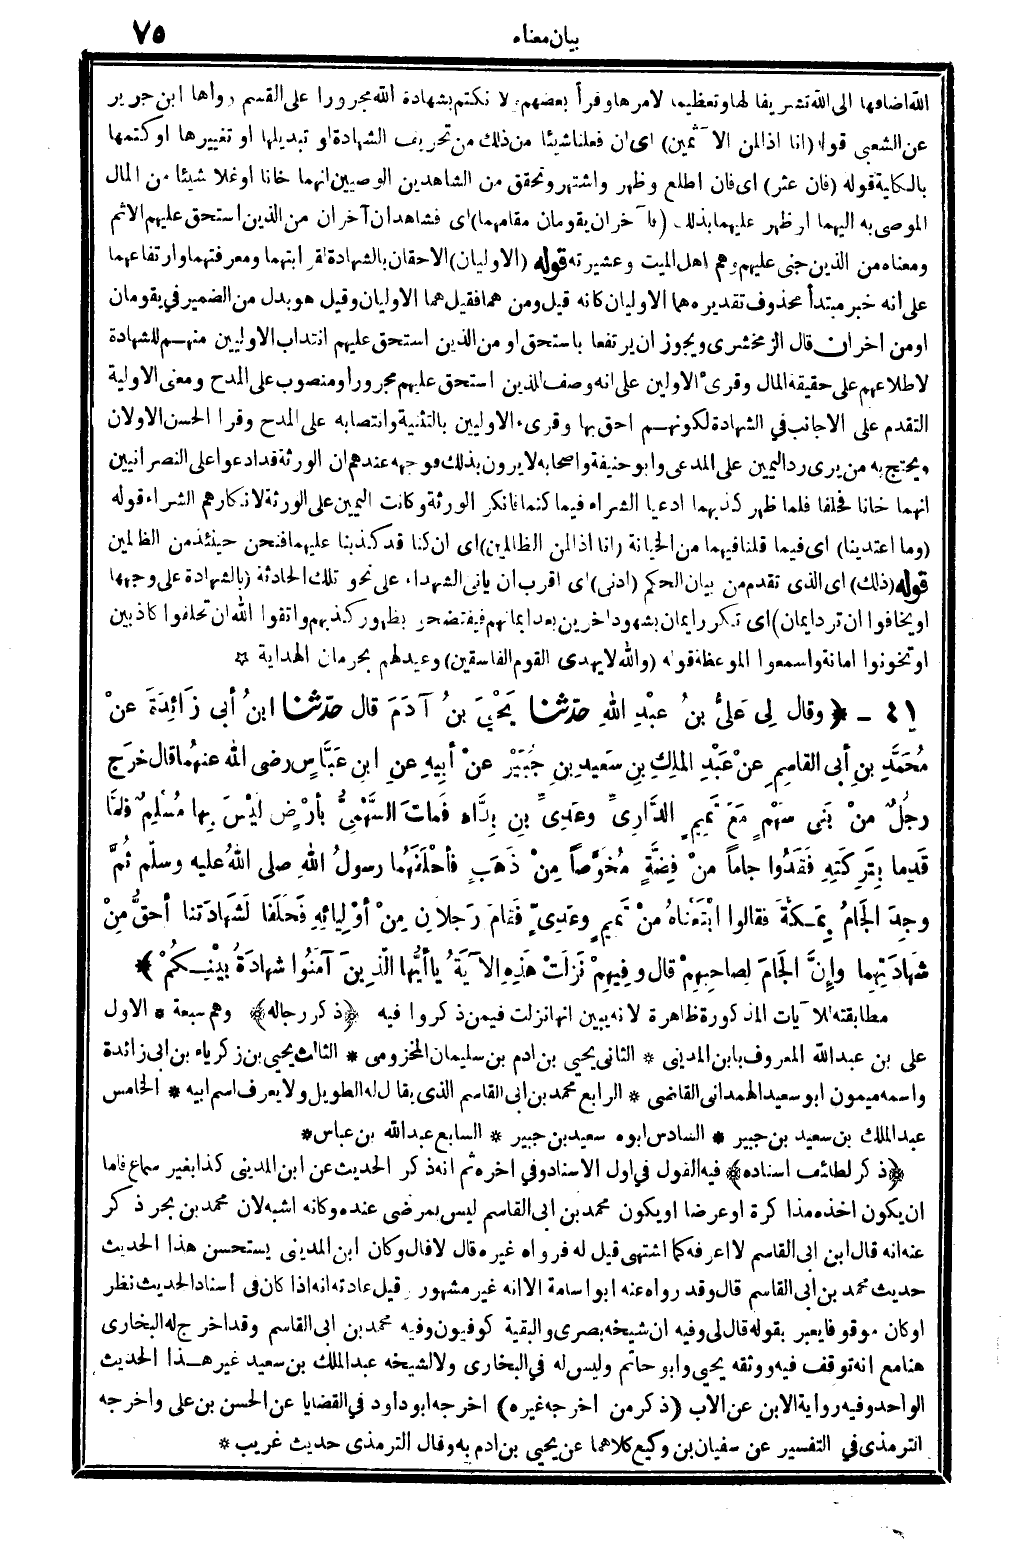 بيان معناه
٧٥
الله اضافها الى الله تشريفا لها وتعظيما لامرها وقرأ بعضهم ولا نكتم بشهادة الله مجرورا على القسم رواها ابن جرير
عن الشعبي قوله (انا اذا لمن الآثمين) اى ان فعلنا شيئا من ذلك من تحريف الشهادة او تبديلها او تغييرها او كتمها
بالكلية قوله (فان عثر) اى فان اطلع وظهر واشتهر وتحقق من الشاهدين الوصيين انهما خانا او غلا شيئا من المال
الموصى به اليهما او ظهر عليهما بذلك (فآخران يقومان مقامهما) اى فشاهدان آخران من الذين استحق عليهم الاثم
ومعناه من الذين جنى عليهم وهم اهل الميت وعشيرته قوله (الاوليان) الاحقان بالشهادة لقرابتهما ومعرفتهما وارتفاعهما
على انه خبر مبتدأ محذوف تقديره هما الاوليان كانه قيل ومن هما فقيل هما الاوليان وقيل هو بدل من الضمير في يقومان
او من اخران قال الزمخشرى ويجوز ان يرتفعا باستحق او من الذين استحق عليهم انتداب الاوليين منهم للشهادة
لاطلاعهم على حقيقة المال وقرئ الاولين على انه وصف للذين استحق عليهم مجرور او منصوب على المدح ومعنى الاولية
التقدم على الاجانب في الشهادة لكونهم احق بها وقرىء الاوليين بالتثنية وانتصابه على المدح وقرا الحسن الاولان
ويحتج به من يرى رد اليمين على المدعى وابو حنيفة واصحابه لا يرون بذلك فوجهه عندهم ان الورثة قد ادعوا على النصرانيين
انهما خانا فحلفا فلما ظهر كذبهما ادعيا الشراء فيما كتما فانكر الورثة وكانت اليمين على الورثة لانكارهم الشراء قوله
(وما اعتدينا) اى فيما قلنا فيهما من الخيانة (انا اذا لمن الظالمين) اى ان كنا قد كذبنا عليهما فنحن حينئذ من الظالمين
قوله (ذلك) اى الذى تقدم من بيان الحكم (ادنى) اى اقرب ان يأتى الشهداء على نحو تلك الحادثة (بالشهادة على وجهها
او يخافوا ان ترد ايمان) اى تكرر ايمان بشهود اخرين بعد ايمانهم فيفتضحوا بظهور كذبهم واتقوا الله ان تحلفوا كاذبين
او تخونوا امانة واسمعوا الموعظة قوله (والله لا يهدى القوم الفاسقين) وعيد لهم بحرمان الهداية ☆
٤١ - ﴿وقال لِي عَلِيُّ بنُ عبْدِ اللهِ حدّثنا يَحْيَى بنُ آدَمَ قال حدّثنا ابنُ أبى زَائِدَةَ عنْ
مُحَمَّدِ بنِ أبى القاسِمِ عنْ عَبْدِ الملِكِ بنِ سَعيدِ بنِ جُبَيْرٍ عنْ أبِيهِ عنِ ابنِ عَبَّاسٍ رضى الله عنهُما قال خرَج
رجُلٌ منْ بَنى سهْمٍ مَعَ تَمِيمٍ الدَّارِىِّ وعَدِىِّ بنِ بدَّاءٍ فَماتَ السَّهْمِىُّ بأرْضٍ ليْسَ بِها مُسْلِمٌ فلمَّا
قَدِما بِتَرِكَتِهِ فَقَدُوا جاماً منْ فِضَّةٍ مُخَوَّصاً مِنْ ذَهَبٍ فأحْلَفَهُما رسولُ اللهِ صلى اللهُ عليه وسلّم ثُمَّ
وجِدَ الجَامُ بِمَكَّةَ فقالوا ابْتَعْناهُ منْ تَمِيمٍ وعَدِىٍّ فقامَ رَجلانِ مِنْ أوْلِيائِهِ فَحَلَفَا لَشَهَادَتنا أحقُّ مِنْ
شهَادَتِهِما وإِنَّ الجَامَ لِصاحِبِهِمْ قال وفِيهِمْ نَزلَتْ هَذِهِ الآيَةُ يا أيُّها الّذِينَ آمَنُوا شهادَةُ بيْنِكُمْ﴾
مطابقته للآيات المذكورة ظاهرة لانه يبين انها نزلت فيمن ذكروا فيه ﴿ذكر رجاله﴾ وهم سبعة * الاول
على بن عبدالله المعروف بابن المدينى * الثانى يحيى بن ادم بن سليمان المخزومى * الثالث يحيى بن زكرياء بن ابى زائدة
واسمه ميمون ابو سعيد الهمدانى القاضى * الرابع محمد بن ابى القاسم الذى يقال له الطويل ولا يعرف اسم ابيه * الخامس
عبد الملك بن سعيد بن جبير * السادس ابوه سعيد بن جبير * السابع عبدالله بن عباس *
﴿ذكر لطائف اسناده﴾ فيه القول في اول الاسناد وفي اخره ثم انه ذكر الحديث عن ابن المدينى كذا بغير سماع فاما
ان يكون اخذه مذاكرة او عرضا او يكون محمد بن ابى القاسم ليس بمرضى عنده وكانه اشبه لان محمد بن بحر ذكر
عنه انه قال ابن ابى القاسم لا اعرفه كما اشتهى قيل له فرواه غيره قال لا قال وكان ابن المدينى يستحسن هذا الحديث
حديث محمد بن ابى القاسم قال وقد رواه عنه ابو اسامة الا انه غير مشهور وقيل عادته انه اذا كان فى اسناد الحديث نظر
او كان موقوفا يعبر بقوله قال لى وفيه ان شيخه بصرى والبقية كوفيون وفيه محمد بن ابى القاسم وقد اخرج له البخارى
هنا مع انه توقف فيه ووثقه يحيى وابو حاتم وليس له في البخارى ولا لشيخه عبد الملك بن سعيد غير هذا الحديث
الواحد وفيه رواية الابن عن الاب (ذكر من اخرجه غيره) اخرجه ابو داود في القضايا عن الحسن بن على واخرجه
الترمذى في التفسير عن سفيان بن وكيع كلاهما عن يحيى بن ادم به وقال الترمذى حديث غريب *